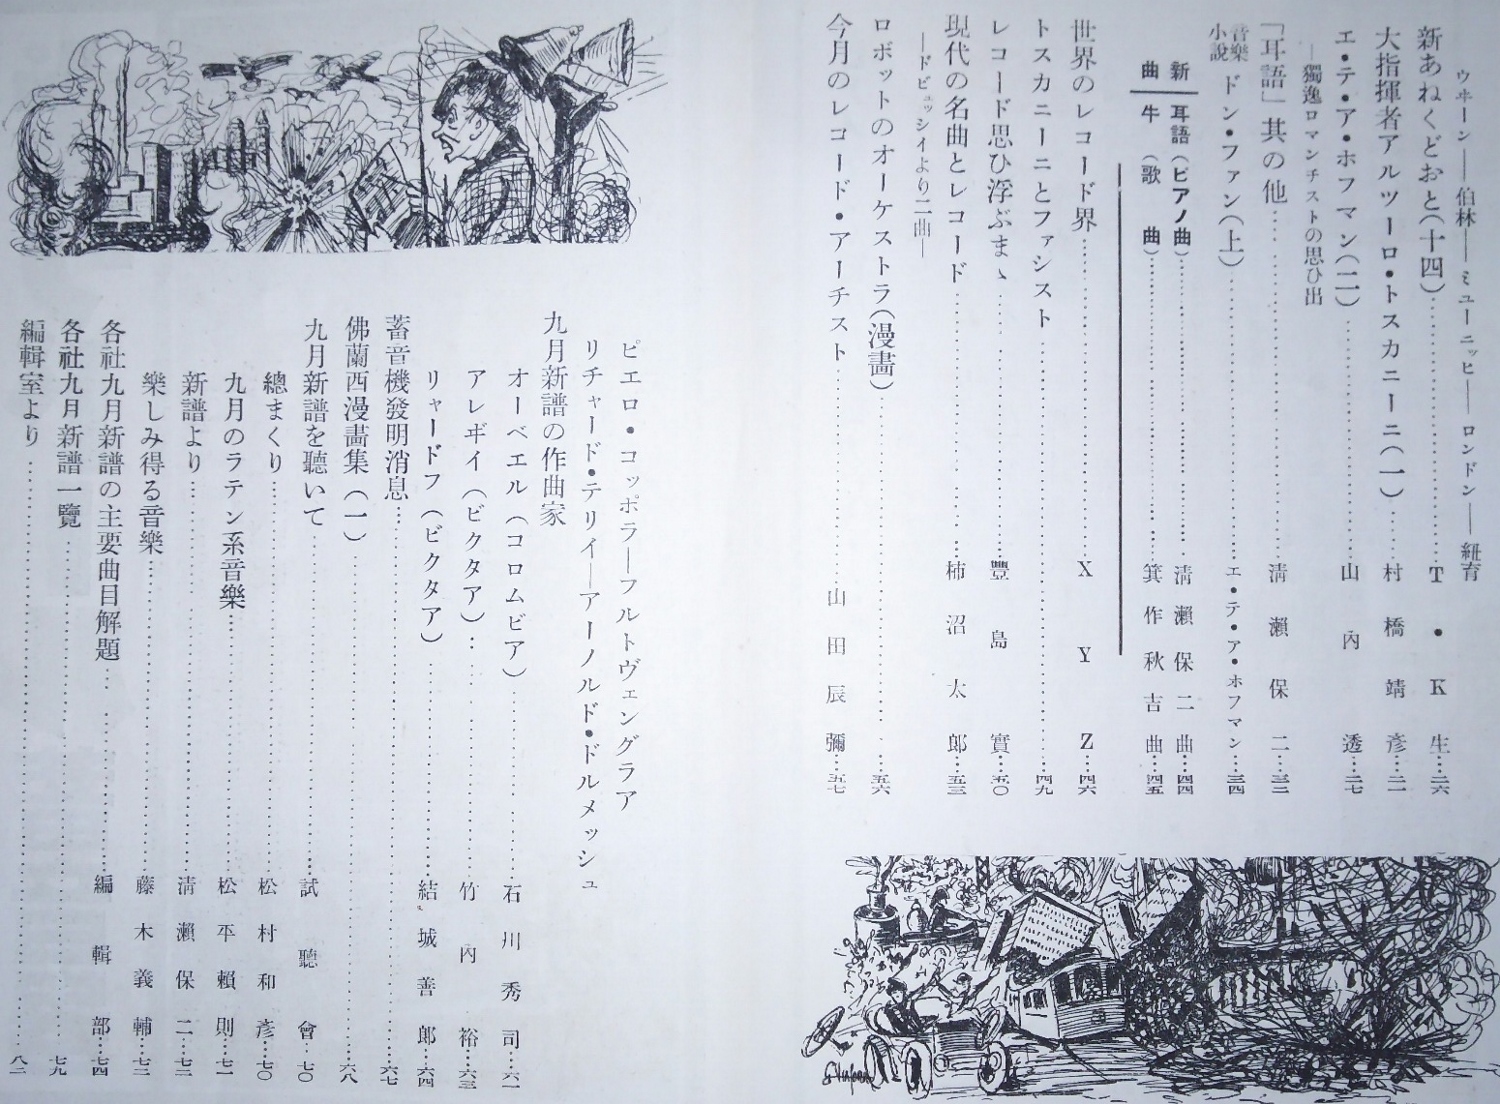 ウヰーン——伯林——ミユーニッヒ——ロンドン——紐育
新あねくどおと(十四)……T・K生…二六
大指揮者アルツーロ・トスカニーニ(一)……村橋靖彦…二一
エ・テ・ア・ホフマン(二)……山內透…二七
—獨逸ロマンチストの思ひ出
「耳語」其の他……淸瀨保二…三二
音樂小說 ドン・ファン(上)……エ・テ・ア・ホフマン…三四
新曲
耳語(ピアノ曲)……淸瀨保二曲…四四
牛(歌曲)……箕作秋吉曲…四五
世界のレコード界……XYZ…四六
トスカニーニとファシスト……四九
レコード思ひ浮ぶまゝ……豐島實…五〇
現代の名曲とレコード……柿沼太郎…五三
—ドビュッシイより二曲—
ロボットのオーケストラ(漫畫)……五六
今月のレコード・アーチスト……山田辰彌…五七
ピエロ・コッポラ—フルトヴェングラア
リチャード・テリイ—アーノルド・ドルメッシュ
九月新譜の作曲家
オーベエル(コロムビア)……石川秀司…六一
アレギイ(ビクタア)……竹內裕…六三
リャードフ(ビクタア)……結城善郎…六四
蓄音機發明消息……六七
佛蘭西漫畫集(一)……六八
九月新譜を聽いて……試聽會…七〇
總まくり……松村和彥…七〇
九月のラテン系音樂……松平賴則…七一
新譜より……淸瀨保二…七二
樂しみ得る音樂……藤木義輔…七三
各社九月新譜の主要曲目解題……編輯部…七四
各社九月新譜一覽……七九
編輯室より……八二